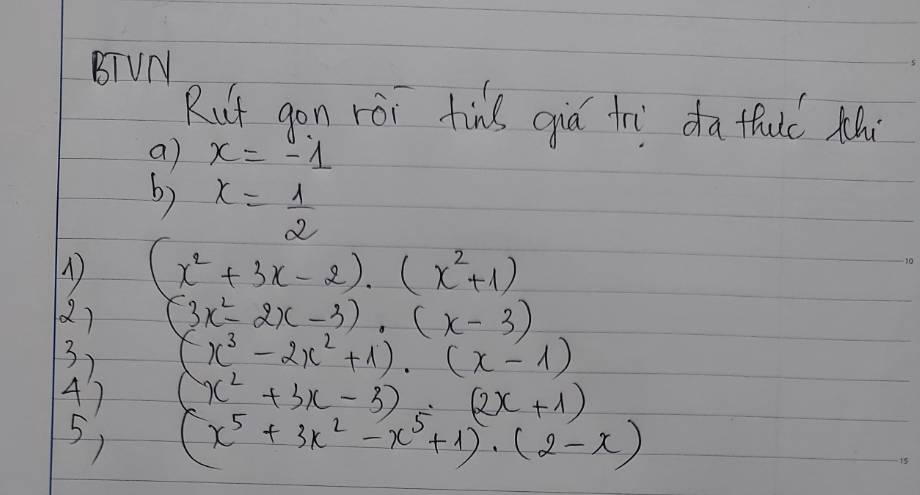 BTVN
Rút gọn rồi tính giá trị đa thức khi
a) x = -1
b) x = 1/2
1) (x² + 3x - 2). (x² + 1)
2) (3x² - 2x - 3). (x - 3)
3) (x³ - 2x² + 1). (x - 1)
4) (x² + 3x - 3). (2x + 1)
5) (x⁵ + 3x² - x⁵ + 1). (2 - x)
5
10
15